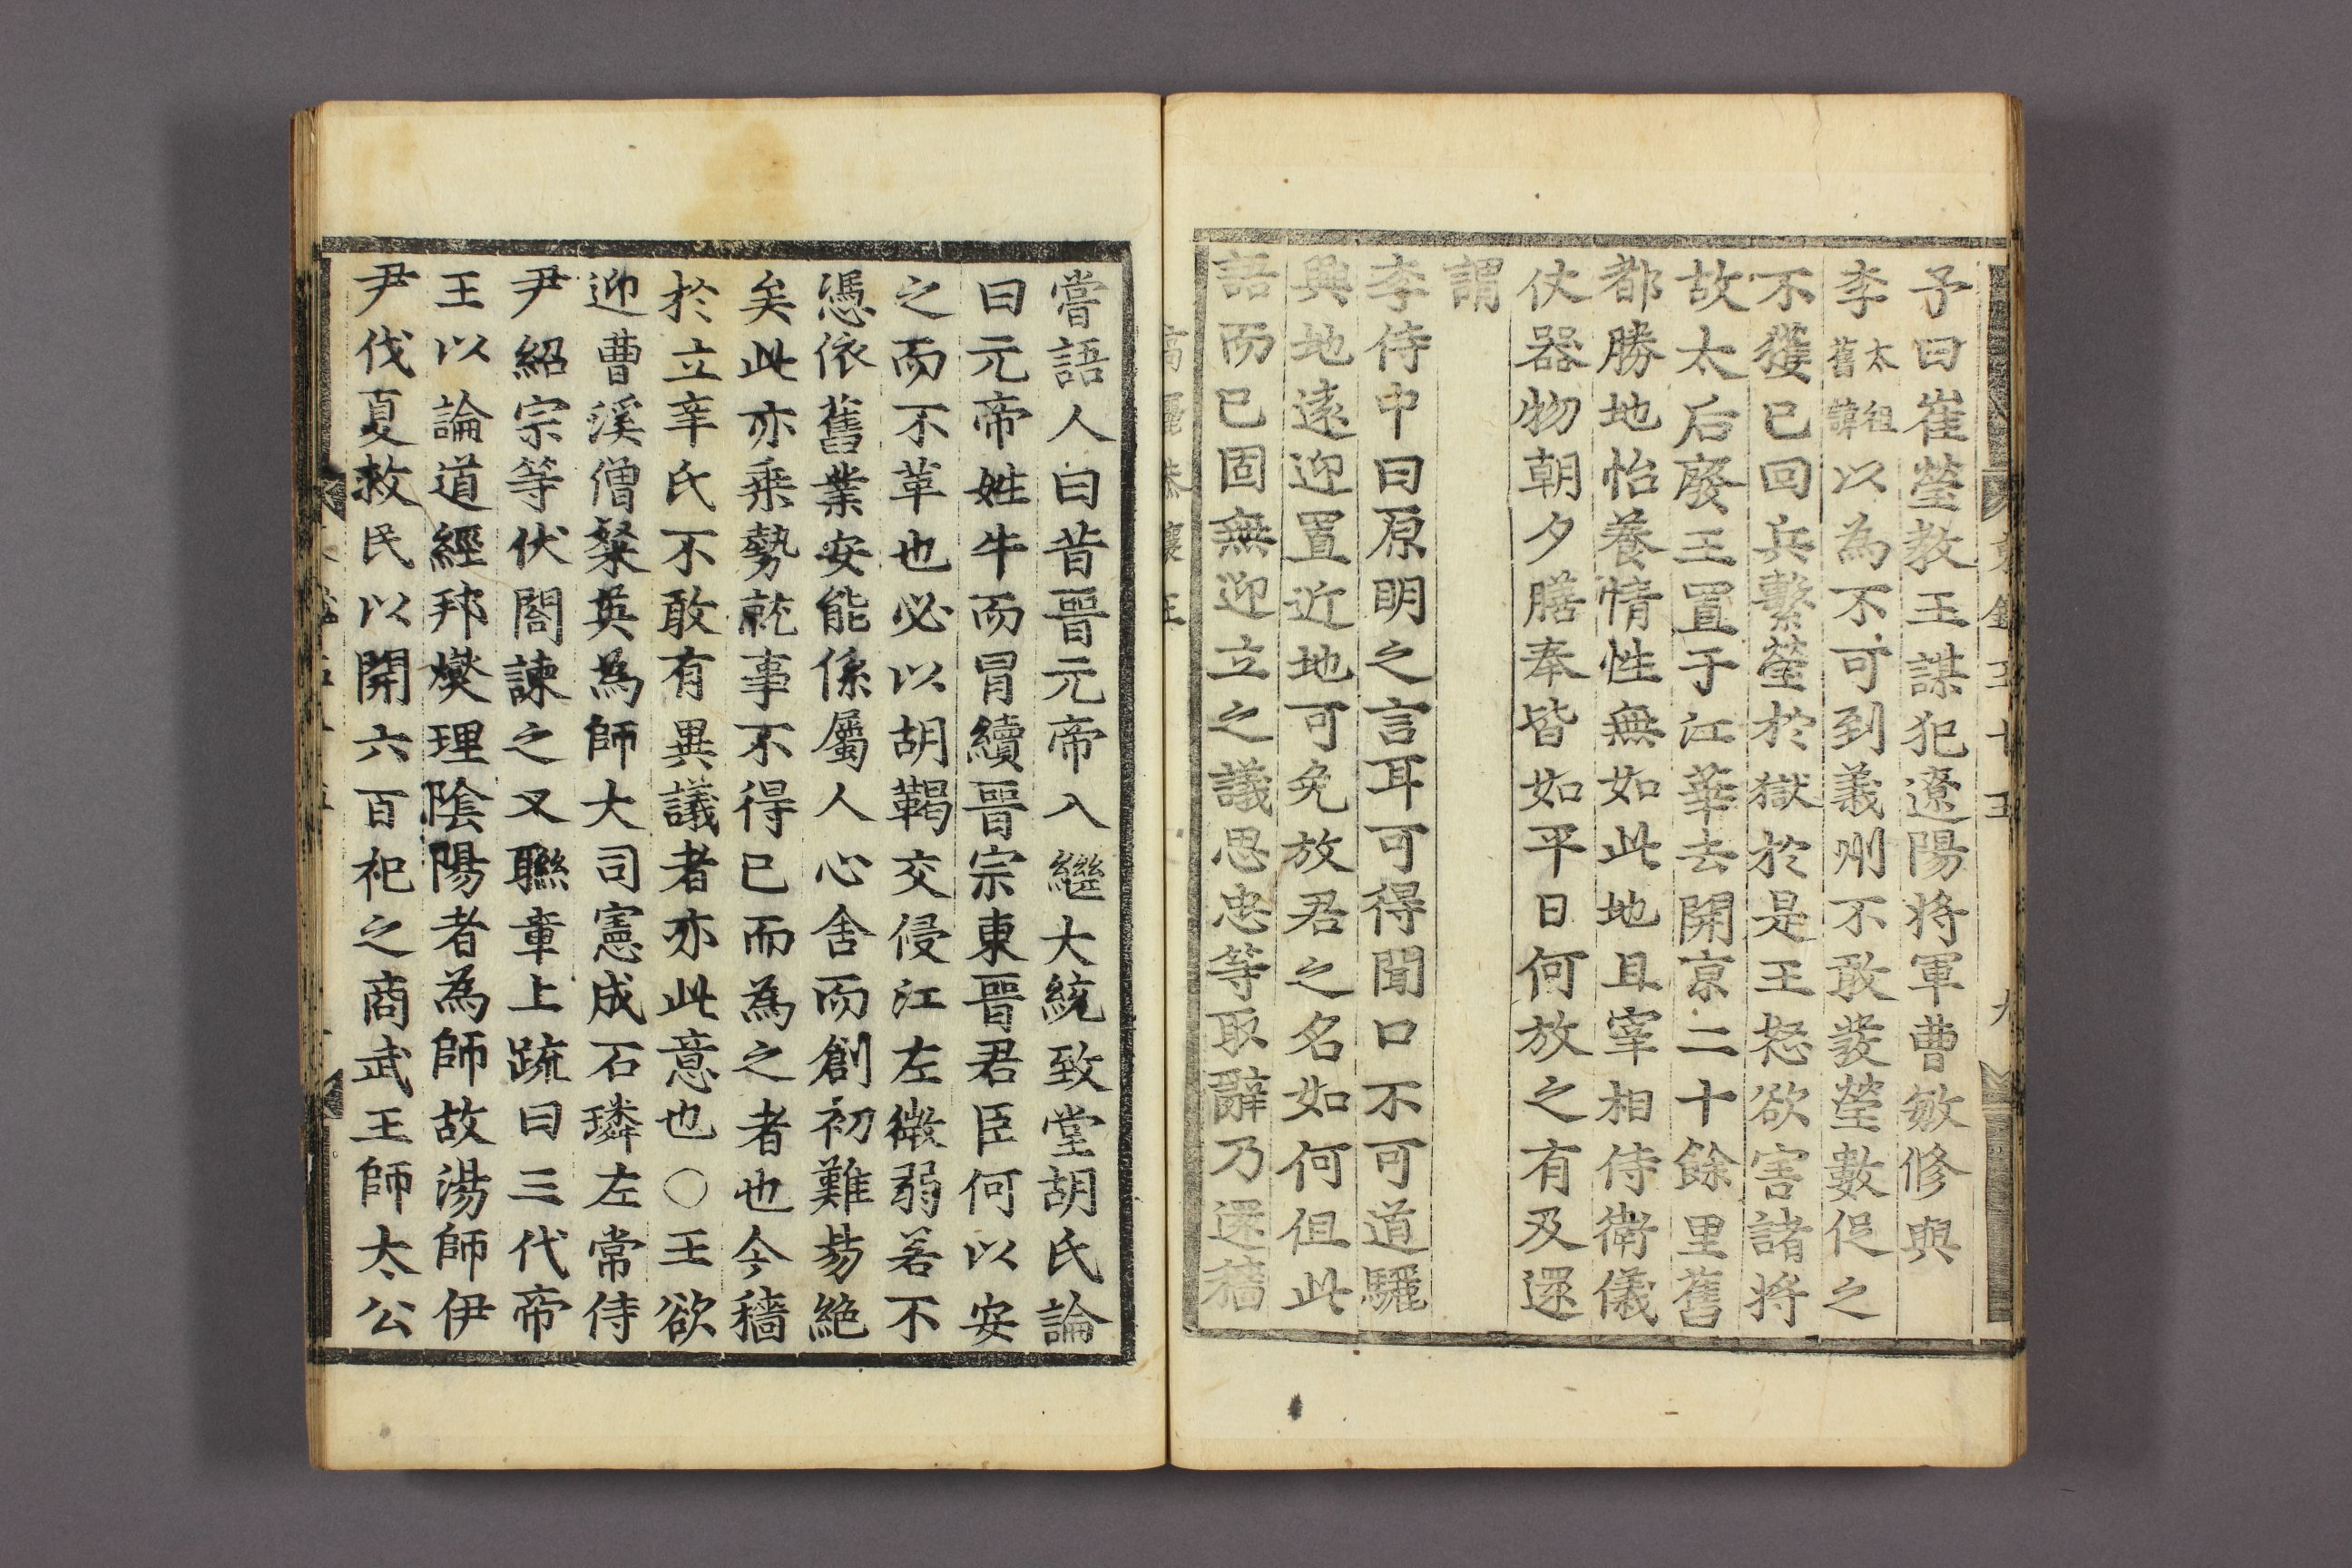 予曰崔瑩教王謀犯遼陽將軍曹敏修與
李太祖舊諱以為不可到義州不敢發瑩數促之
不獲已回兵繫瑩於獄於是王怒欲害諸將
故太后廢王置于江華去開京二十餘里舊
都勝地怡養情性無如此地且宰相侍衛儀
仗器物朝夕膳奉皆如平日何放之有及還
謂
李侍中曰原明之言耳可得聞口不可道驪
興地遠迎置近地可免放君之名如何但此
語而已固無迎立之議思忠等取辭乃還穡
高麗恭讓王
嘗語人曰昔晉元帝入繼大統致堂胡氏論
曰元帝姓牛而冒續晉宗東晉君臣何以安
之而不革也必以胡羯交侵江左微弱若不
憑依舊業安能係屬人心舍而創初難易絶
矣此亦乘勢就事不得已而為之者也今穡
於立辛氏不敢有異議者亦此意也○王欲
迎曹溪僧粲英為師大司憲成石璘左常侍
尹紹宗等伏閤諫之又聯章上疏曰三代帝
王以論道經邦燮理陰陽者為師故湯師伊
尹伐夏救民以開六百祀之商武王師太公